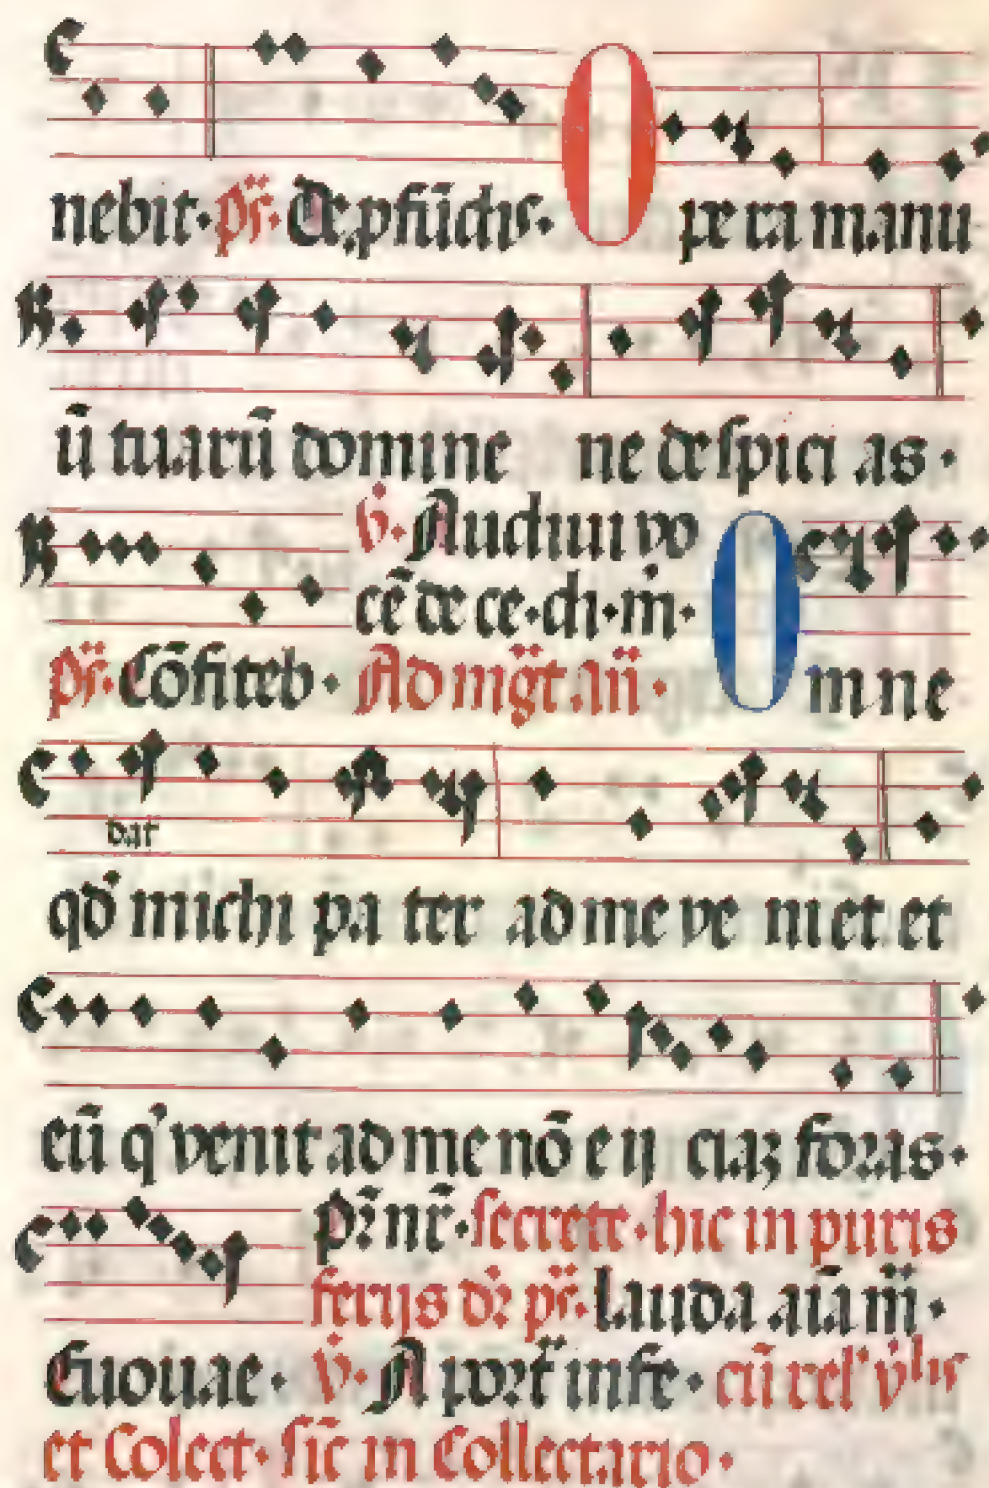 nebit. ps̄. De pfūdis. O pera manu
ū tuarū domine ne despici as.
v̄. Audiui vo
cē de ce. di. m̄.
ps̄. Cōfiteb. Ad mḡt añ. Omne
dat
qd̄ michi pa ter ad me ve niet et
eū q̇ venit ad me nō e ij ciaʒ foras.
Pr̄ nr̄. secrete. hic in puris
ferijs dr̄ ps̄. lauda aīa m̄.
Euouae. v̄. A port̄ infe. cū rel' v̄lis
et Colect. sic̄ in Collectario.